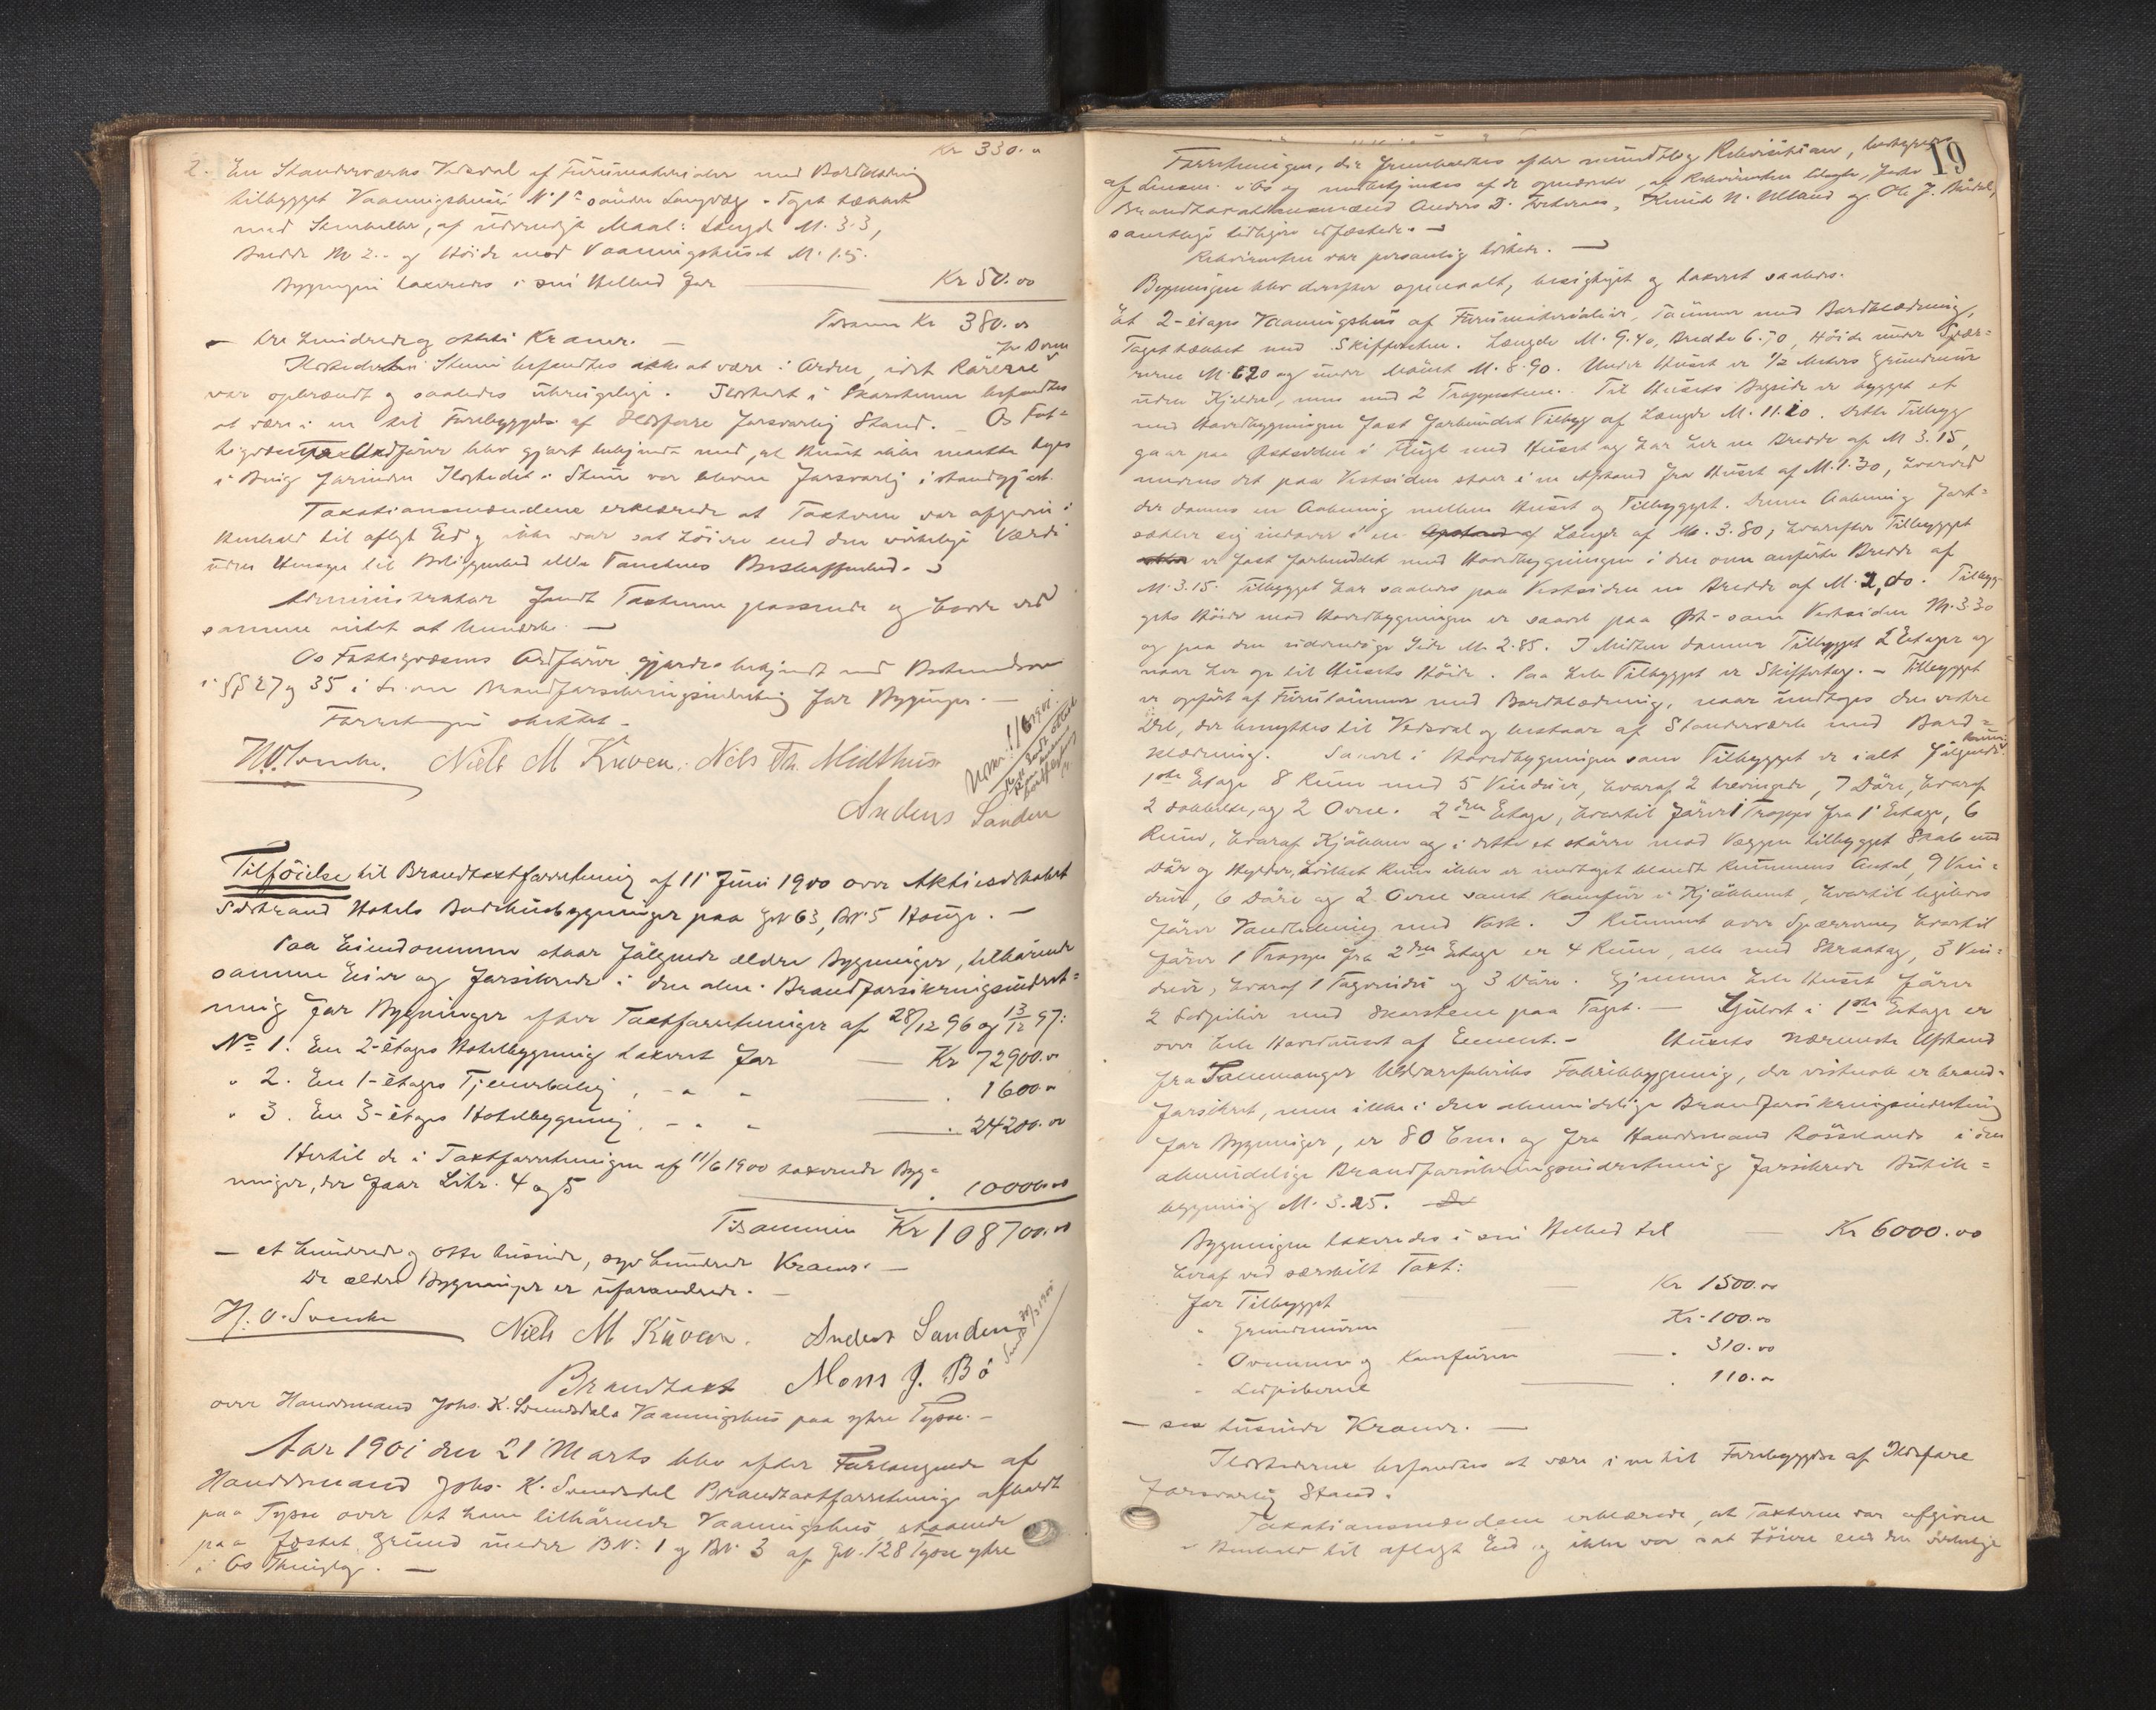 Kr 330.00
2. En Standerværks Vedsval af Furumaterialer med Bordklædning
tilbygget Vaaningshuset No 1s søndre Langvæg. Taget tækket
med Stenheller, af udvendige Maal: Længde M. 3.3,
Bredde M 2.- og Høide mod Vaaningshuset M. 1.5.
Bygningen taxeredes i sin Helhed for Kr 50.00
Tilsammen Kr 380.00
- tre hundrede og otteti Kroner. -
Ildstedet i Stuen befandtes ikke at være i Orden, idet Rørene
var opbrændt og saaledes ubrugelige. Ildstedet i Skorstenen befandtes
at være i en til Forebyggelse af Ildsfare forsvarlig Stand. - Os Fat-
tigvæsens Ordfører blev gjort bekjendt med, at Huset ikke maatte tages
i Brug forinden Ildstedet i Stuen var bleven forsvarlig istandgjort.
Taxationsmændene erklærede at Taxterne var afgivne i
Henhold til aflagt Ed og ikke var sat høiere end den virkelige Værdi
uden Hensyn til Beliggenhed eller Tomtens Beskaffenhed.
Administrator fandt Taxterne passende og havde ved
samme intet at bemærke. -
Os Fattigvæsens Ordfører gjordes bekjendt med Bestemmelserne
i §§ 27 og 35 i Brandforsikringsindretning for Bygninger. -
Forretningen sluttet. -
Niels M Kuven. Nils Th. Midthus
Anders Sanden
Tilføielse til Brandtaxtforretning af 11 Juni 1900 over Aktieselskabet
Solstrand Hotels Badehusbygninger paa Gn 63, Bn. 5 Hauge. -
Paa Eiendommen staar følgende ældre Bygninger, tilhørende
samme Eier og forsikrede i den alm. Brandforsikringsindret-
ning for Bygninger efter Taxtforretninger af 28/12 96 og 13/12 97:
No 1. En 2-etages Hotelbygning taxeret for - Kr 72900.00
" 2. En 1-etages Tjenerbolig, - " - " 1600.00
" 3. En 3-etages Hotelbygning, - " - " 24200.00
Hertil de i Taxtforretningen af 11/6 1900 taxerede Byg-
ninger, der faar Litr. 4 og 5 " 10000.00
Tilsammen Kr 108700.00
- et hundrede og otte tusinde, syv hundrede Kroner. -
De ældre Bygninger er uforandrede. -
Niels M Kuven. Anders Sanden
Brandtaxt Mons J. Bö
over Handelsmand Johs. K. Svendsdals Vaaningshus paa ytre Tysse. -
Aar 1901 den 21 Marts blev efter Forlangende af
Handelsmand Johs. K. Svendsdal Brandtaxtforretning afholdt
paa Tysse over et ham tilhørende Vaaningshus, staaende
paa fæstet Grund under B.N. 1 og B.N. 3 af G.N. 128 Tysse ytre
i Os Thinglag. -
19
Forretningen, der fremholdtes efter mundtlig Rekvisition, bestyredes
af Lensm. i Os og medbetjentes af de opnævnte, af Rekvirenten tilsagte, faste
Brandtaxationsmænd Anders D. Tveteraas, Knud N. Ulland og Ole J.
samtlige tidligere edfæstede. -
Rekvirenten var personlig tilstede. -
Bygningen blev derefter opmaalt, besigtiget og taxeret saaledes.
Et 2-etages Vaaningshus af Furumaterialier, Tømmer med Bordklædning,
Taget tækket med Skiffersten. Længde M. 9.40, Bredde 6.70, Høide under Spær-
rerne M. 6.20 og under Mønet M. 8.90. Under Huset er 1/2 Meters Grundmur
uden Kjelder, men med 2 Trappestene. Til Husets Bagside er bygget et
med Hovedbygningen fast forbundet Tilbyg af Længde M. 11.20. Dette Tilbyg
gaar paa Østsiden i Flugt med Huset og har her en Bredde af M 3.15,
medens det paa Vestsiden staar i en Afstand fra Huset af M. 1.30, hvorved
der dannes en Aabning mellem Huset og Tilbygget. Denne Aabning fort-
sætter sig indover i en Længde af M. 3.80, hvorefter Tilbygget
er fast forbundet med Hovedbygningen i den ovn anførte Bredde af
M. 3.15. Tilbygget har saaledes paa Vestsiden en Bredde af M. 2,00. Tilbyg-
gets Høide mod Hovedbygningen er saavel paa Øst- som Vestsiden M. 3.30
og paa den udvendige Side M. 2.85. I Midten danner Tilbygget 2 Etager og
naar her op til Husets Høide. Paa hele Tilbygget er Skiffertag. - Tilbygget
er opført af Furutømmer med Bordklædning, naar undtages den vestre
Del, der benyttes til Vedsval og bestaar af Standerværk med Bord-
klædning. Saavel i Hovedbygningen som Tilbygget er ialt følgende
1ste Etage 8 Rum med 5 Vinduer, hvoraf 2 trevingede, 7 Døre, hvoraf
2 dobbelte, og 2 Ovne. 2den Etage, hvortil fører 1 Trappe fra 1 Etage, 6
Rum, hvoraf Kjøkken og i dette et større mod Væggen tilbygget Skab med
Dør og Hylder, hvilket Rum ikke er medtaget blandt Rummenes Antal, 9 Vin-
duer, 6 Døre og 2 Ovne samt Komfur i Kjøkkenet, hvortil ligeledes
fører Vandledning med Vask. I Rummet over Spærrerne, hvortil
fører 1 Trappe fra 2den Etage er 4 Rum, alle med Skraatag, 3 Vin-
duer, hvoraf 1 Tagvindu og 3 Døre. Gjennem hele Huset fører
2 Ildspiber med Skorstene paa Taget. - Gulvet i 1ste Etage er
over hele Hovedhuset af Cement. - Husets nærmeste Afstand
fra Salemanger Uldvarefabriks Fabrikbygning, der vistnok er brand-
forsikret, men ikke i den almindelige Brandforsikringsindretning
for Bygninger, er 80 Ctm. og fra Handelsmand Røsslands i den
almindelige Brandforsikringsindretning forsikrede Butik-
bygning M. 3.25.
Bygningen taxeredes i sin Helhed til - Kr 6000.00
hvoraf ved særskilt Taxt:
for Tilbygget Kr 1500.00
" Grundmuren Kr 100.00
" Ovnene og Komfuren " 310.00
" Ildspiberne " 110.00
- sex tusinde Kroner. -
Ildstederne befandtes at være i en til Forebyggelse af Ildsfare
forsvarlig Stand.
Taxationsmændene erklærede, at Taxterne var afgivne
i Henhold til aflagt Ed og ikke var sat høiere end den virkelige